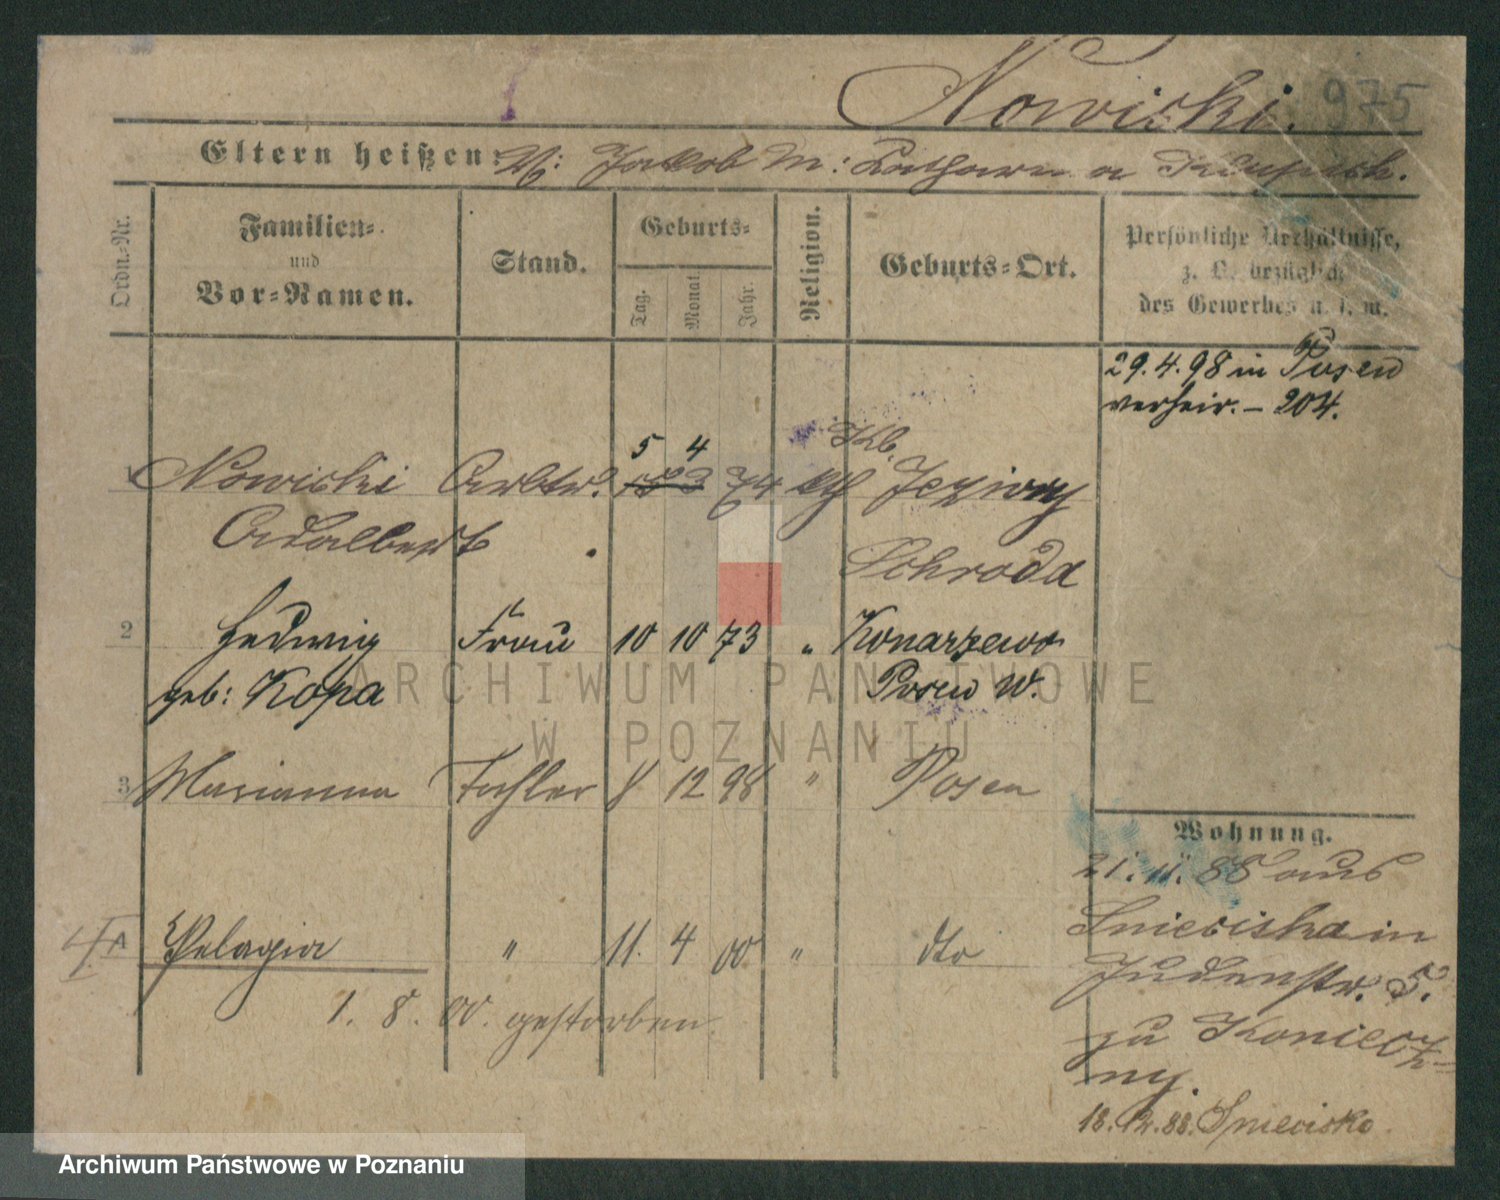 Nowicki. 975
Eltern heißen: V: Jakob M: Katharina
Ordn.-Nr.
Familien- und Vor-Namen.
Stand.
Geburts-
Tag. Monat. Jahr.
Religion.
Geburts-Ort.
Persönliche Verhältnisse,
z. B. bezüglich
des Gewerbes u. s. w.
29.4.98 in Posen
verheir. – 204.
5 4 Klb.
1 Nowicki Arbtr. 74 kth Jeziory
Adalbert Schroda
2 Hedwig Frau 10 10 73 " Konarzewo
geb: Kopa Posen W.
3 Marianna Tochter 8 12 98 " Posen
Wohnung.
21.11.88 aus
Snieciska in
4 Pelagia " 11. 4 00 " dto
Judenstr. 5.
1. 8. 00. gestorben.
zu Koniecz-
ny.
18.12.88. Sniecisko
ARCHIWUM PAŃSTWOWE
W POZNANIU
Archiwum Państwowe w Poznaniu